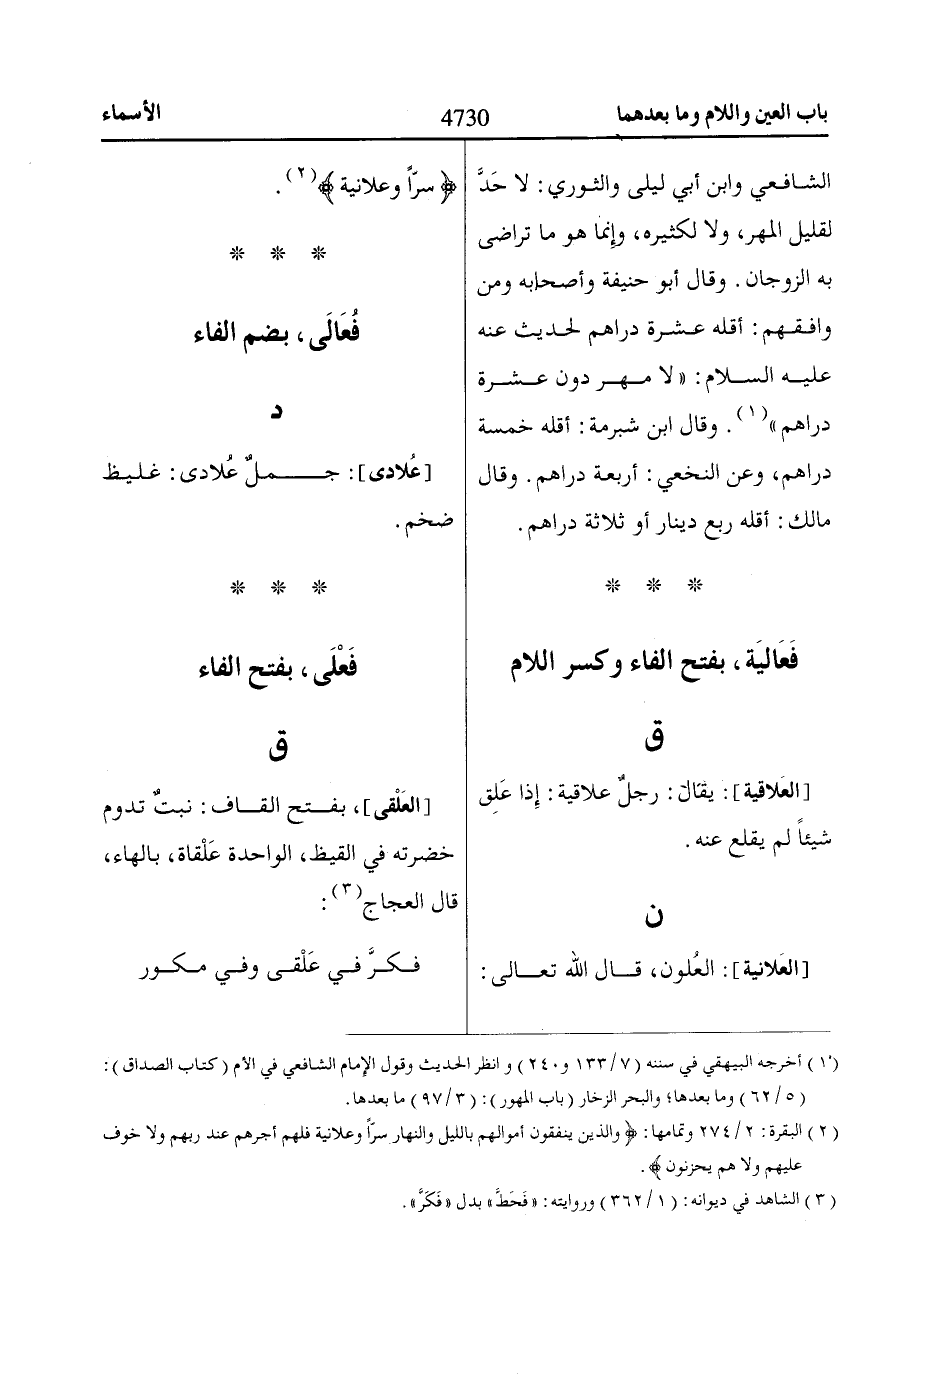 باب العين واللام وما بعدهما 4730 الأسماء
الشافعي وابن أبي ليلى والثوري: لا حَدَّ
لقليل المهر، ولا لكثيره، وإنما هو ما تراضى
به الزوجان. وقال أبو حنيفة وأصحابه ومن
وافقهم: أقله عشرة دراهم لحديث عنه
عليه السلام: «لا مهر دون عشرة
دراهم»(١). وقال ابن شبرمة: أقله خمسة
دراهم، وعن النخعي: أربعة دراهم. وقال
مالك: أقله ربع دينار أو ثلاثة دراهم.
* * *
فَعَالِيَة، بفتح الفاء وكسر اللام
ق
[العَلاقية]: يقال: رجلٌ علاقية: إذا عَلِق
شيئاً لم يقلع عنه.
ن
[العَلانية]: العُلون، قال الله تعالى:
﴿سرّاً وعلانية﴾(٢).
* * *
فُعَالَى، بضم الفاء
د
[عُلادى]: جملٌ عُلادى: غليظ
ضخم.
* * *
فَعْلَى، بفتح الفاء
ق
[العَلْقى]، بفتح القاف: نبتٌ تدوم
خضرته في القيظ، الواحدة عَلْقاة، بالهاء،
قال العجاج(٣):
فكرَّ في عَلْقى وفي مكور
(١) أخرجه البيهقي في سننه (٧/١٣٣ و٢٤٠) و انظر الحديث وقول الإمام الشافعي في الأم (كتاب الصداق):
(٥/٦٢) وما بعدها؛ والبحر الزخار (باب المهور): (٣/٩٧) ما بعدها.
(٢) البقرة: ٢/٢٧٤ وتمامها: ﴿والذين ينفقون أموالهم بالليل والنهار سرّاً وعلانية فلهم أجرهم عند ربهم ولا خوف
عليهم ولا هم يحزنون﴾.
(٣) الشاهد في ديوانه: (١/٣٦٢) وروايته: «فَحَطَّ» بدل «فَكَرَّ».